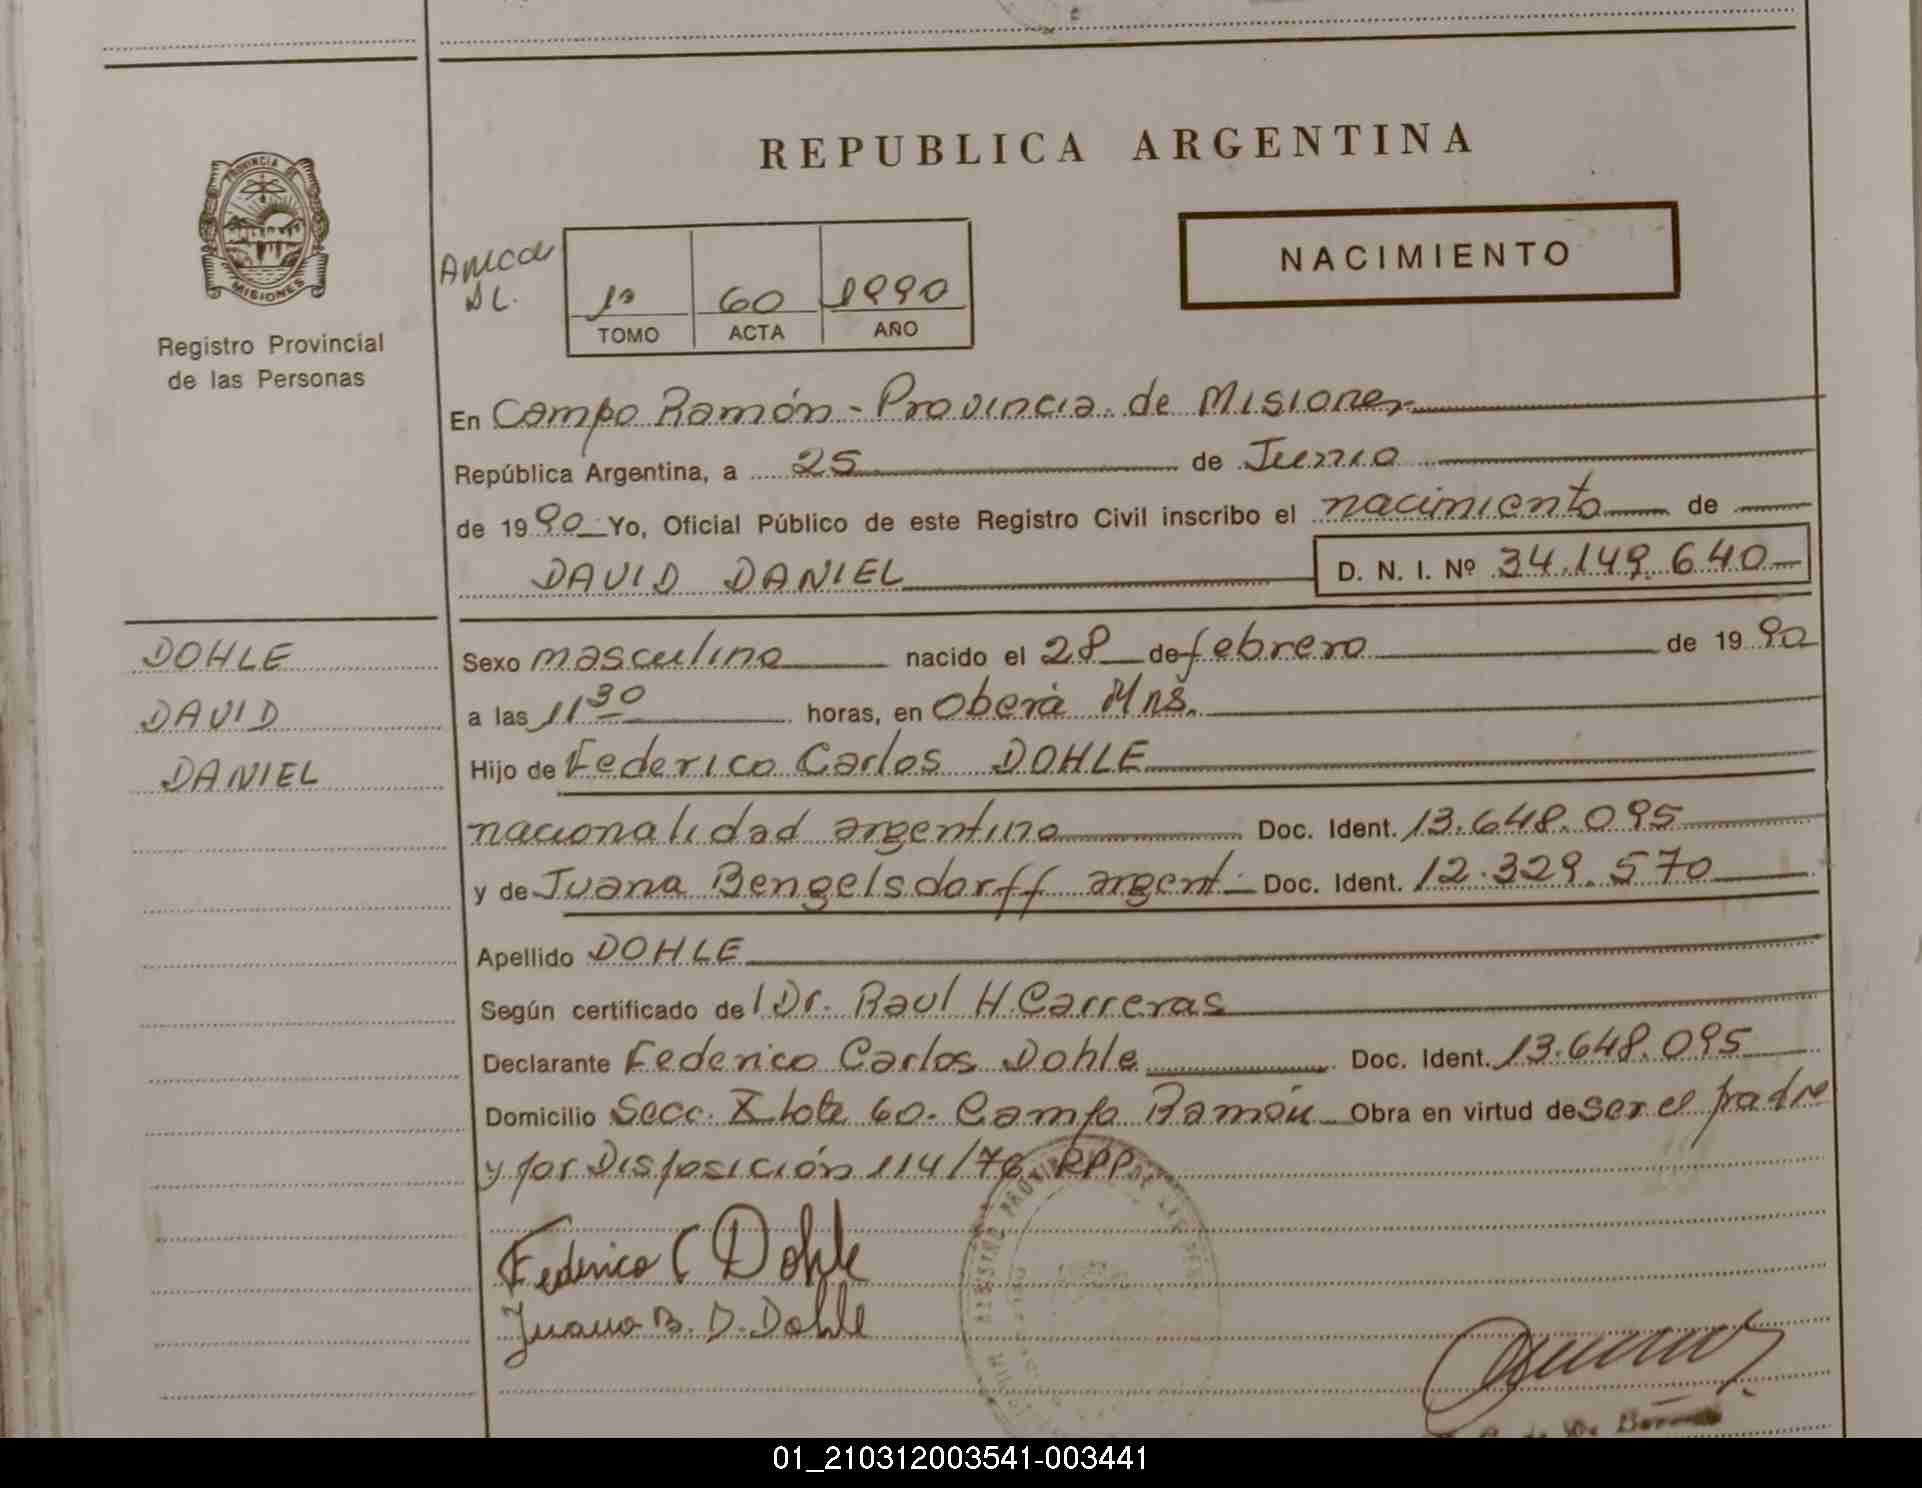 REPUBLICA ARGENTINA
PROVINCIA DE
MISIONES
Registro Provincial
de las Personas
1º 60 1990
TOMO ACTA AÑO
NACIMIENTO
En Campo Ramón - Provincia de Misiones
República Argentina, a 25 de Junio
de 1990 Yo, Oficial Público de este Registro Civil inscribo el nacimiento de
DAVID DANIEL D. N. I. Nº 34.149.640
DOHLE
DAVID
DANIEL
Sexo masculino nacido el 28 de febrero de 1990
a las 11 30 horas, en Oberá Mns.
Hijo de Federico Carlos DOHLE
nacionalidad argentina Doc. Ident. 13.648.095
y de Juana Bengelsdorff argent. Doc. Ident. 12.329.570
Apellido DOHLE
Según certificado del Dr. Raul H. Carreras
Declarante Federico Carlos Dohle Doc. Ident. 13.648.095
Domicilio Secc. X lote 60. Campo Ramón Obra en virtud de ser el padre
y por Disposición 114/76 RPP
Federico C Dohle
Juana B. D. Dohle
01_210312003541-003441